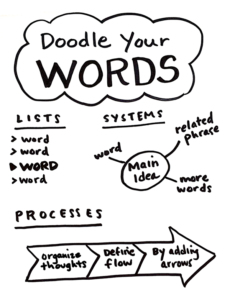 Doodle Your
WORDS
LISTS
> word
> word
> WORD
> word
SYSTEMS
word
Main
Idea
related
phrase
more
words
PROCESSES
organize
thoughts
Define
flow
By adding
arrows